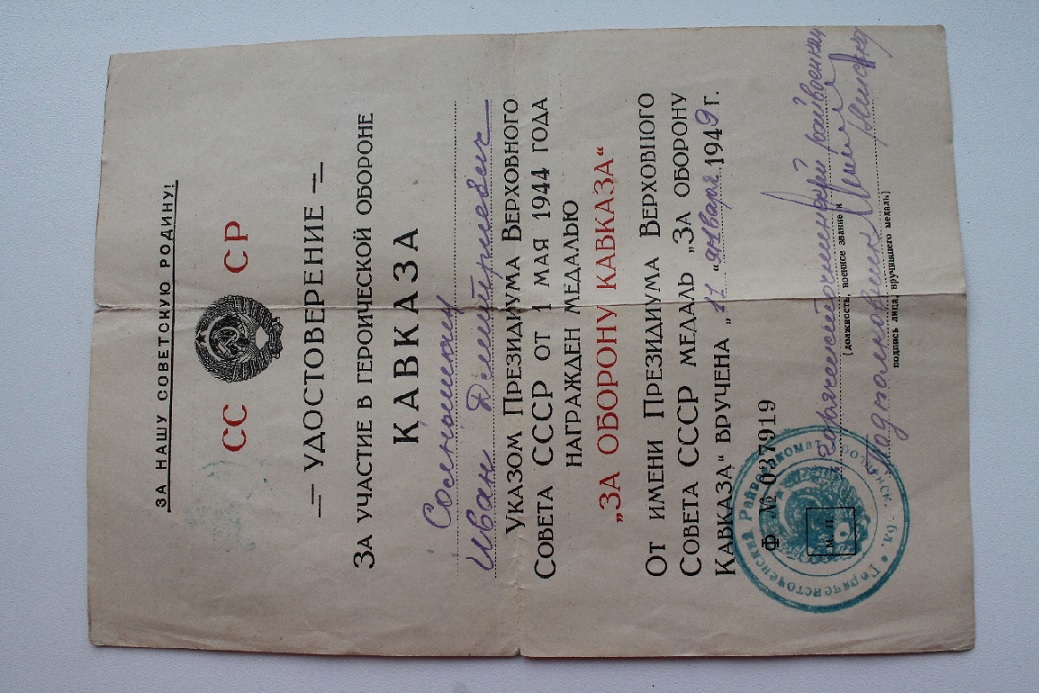 ЗА НАШУ СОВЕТСКУЮ РОДИНУ!
СС СР
— УДОСТОВЕРЕНИЕ —
ЗА УЧАСТИЕ В ГЕРОИЧЕСКОЙ ОБОРОНЕ
КАВКАЗА
Иван Дмитриевич
УКАЗОМ ПРЕЗИДИУМА ВЕРХОВНОГО
СОВЕТА СССР ОТ 1 МАЯ 1944 ГОДА
НАГРАЖДЕН МЕДАЛЬЮ
„ЗА ОБОРОНУ КАВКАЗА“
ОТ ИМЕНИ ПРЕЗИДИУМА ВЕРХОВНОГО
СОВЕТА СССР МЕДАЛЬ „ЗА ОБОРОНУ
КАВКАЗА“ ВРУЧЕНА „17“ января 1949 г.
Ф № 037919
Горячеисточненский райвоенком
(должность, военное звание и
Подполковник
подпись лица, вручившего медаль)
М П.
Горячеисточенский Райвоенкомат